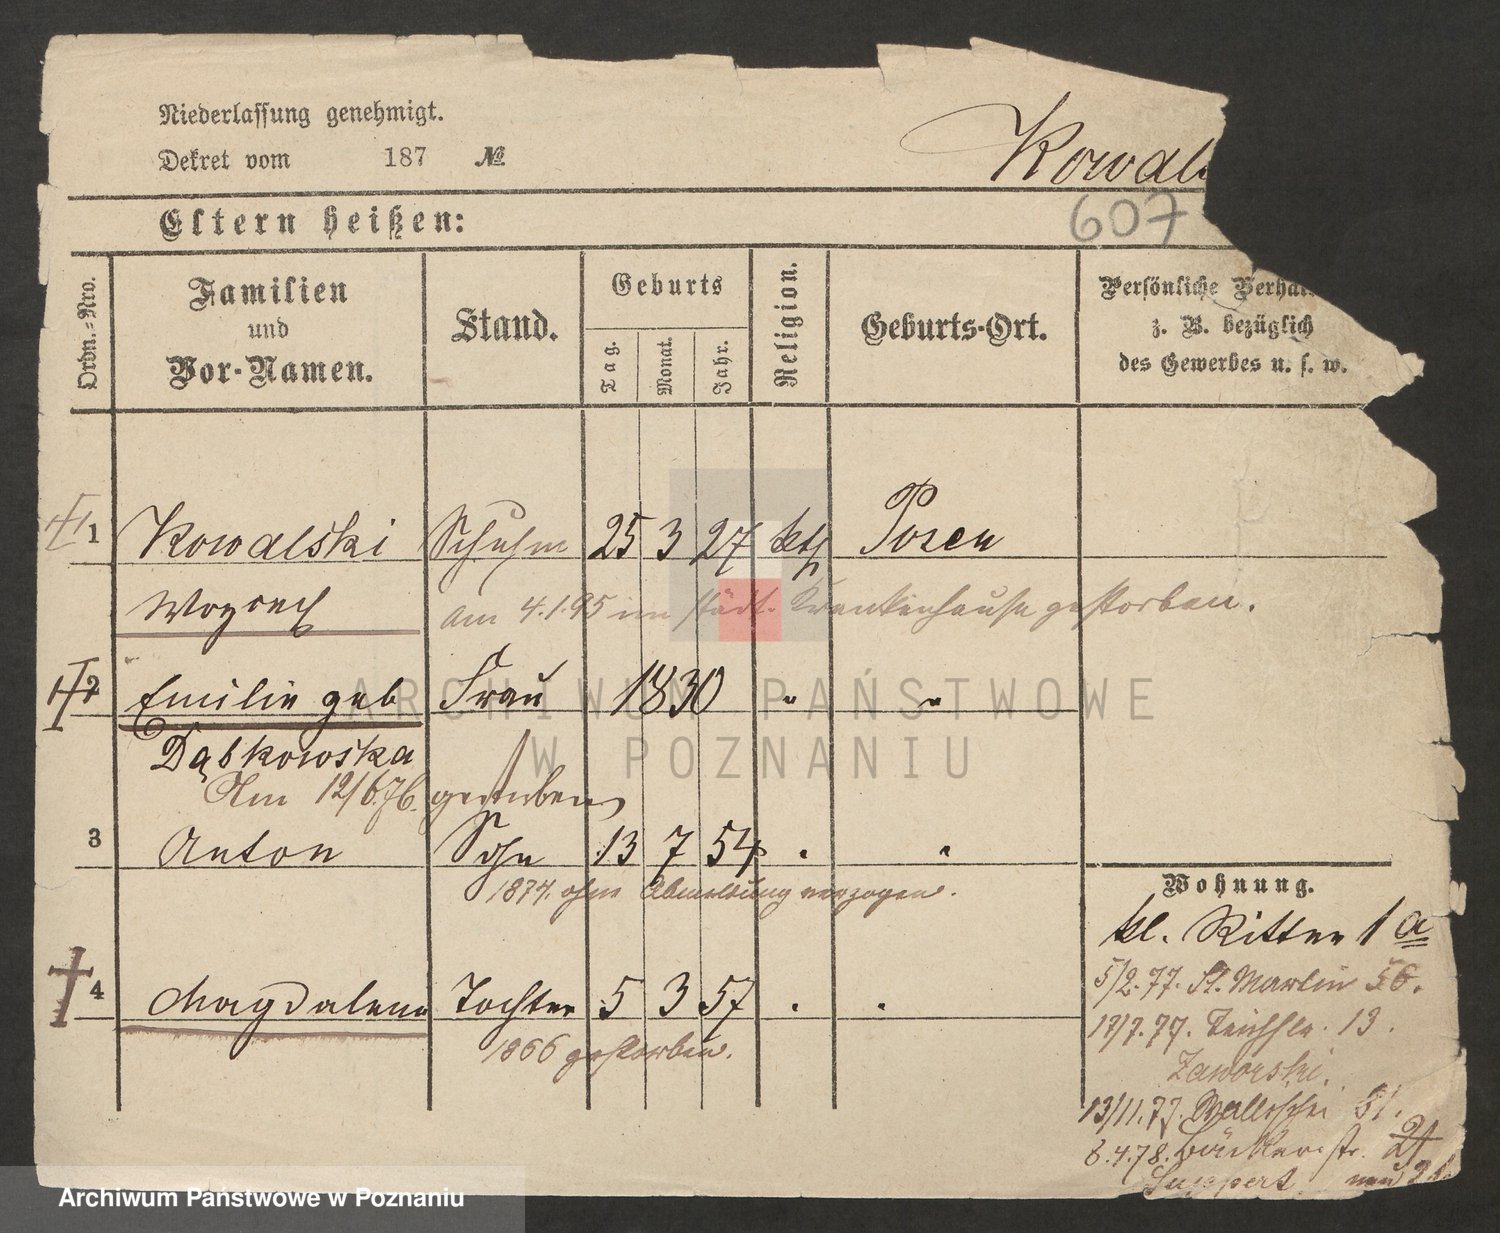 Niederlassung genehmigt.
Dekret vom 187 №
Kowal
607
Eltern heißen:
Ordn.=Nro.
Familien und Vor-Namen.
Stand.
Geburts
Tag.
Monat.
Jahr.
Religion.
Geburts-Ort.
Persönliche Verhäl
z. B. bezüglich
des Gewerbes u. s. w.
1 Kowalski Schuhm 25 3 27 kth Posen
Woyzech am 4.1.95 im städt. Krankenhause gestorben.
2 Emilie geb Frau 1830 " "
Dąbkowska
Am 12/6.76. gestorben
3 Anton Sohn 13 7 54 " "
1874. ohne Abmeldung verzogen.
Wohnung.
kl. Ritter 1 a
5/2.77. St. Martin 56.
4 Magdalena Tochter 5 3 57 " "
17/7.77. Teichstr. 13.
1866 gestorben.
Zaworski.
13/11.77. Wallischei 51.
6.4.78. Bäckerstr. 21
ARCHIWUM PAŃSTWOWE
W POZNANIU
Archiwum Państwowe w Poznaniu